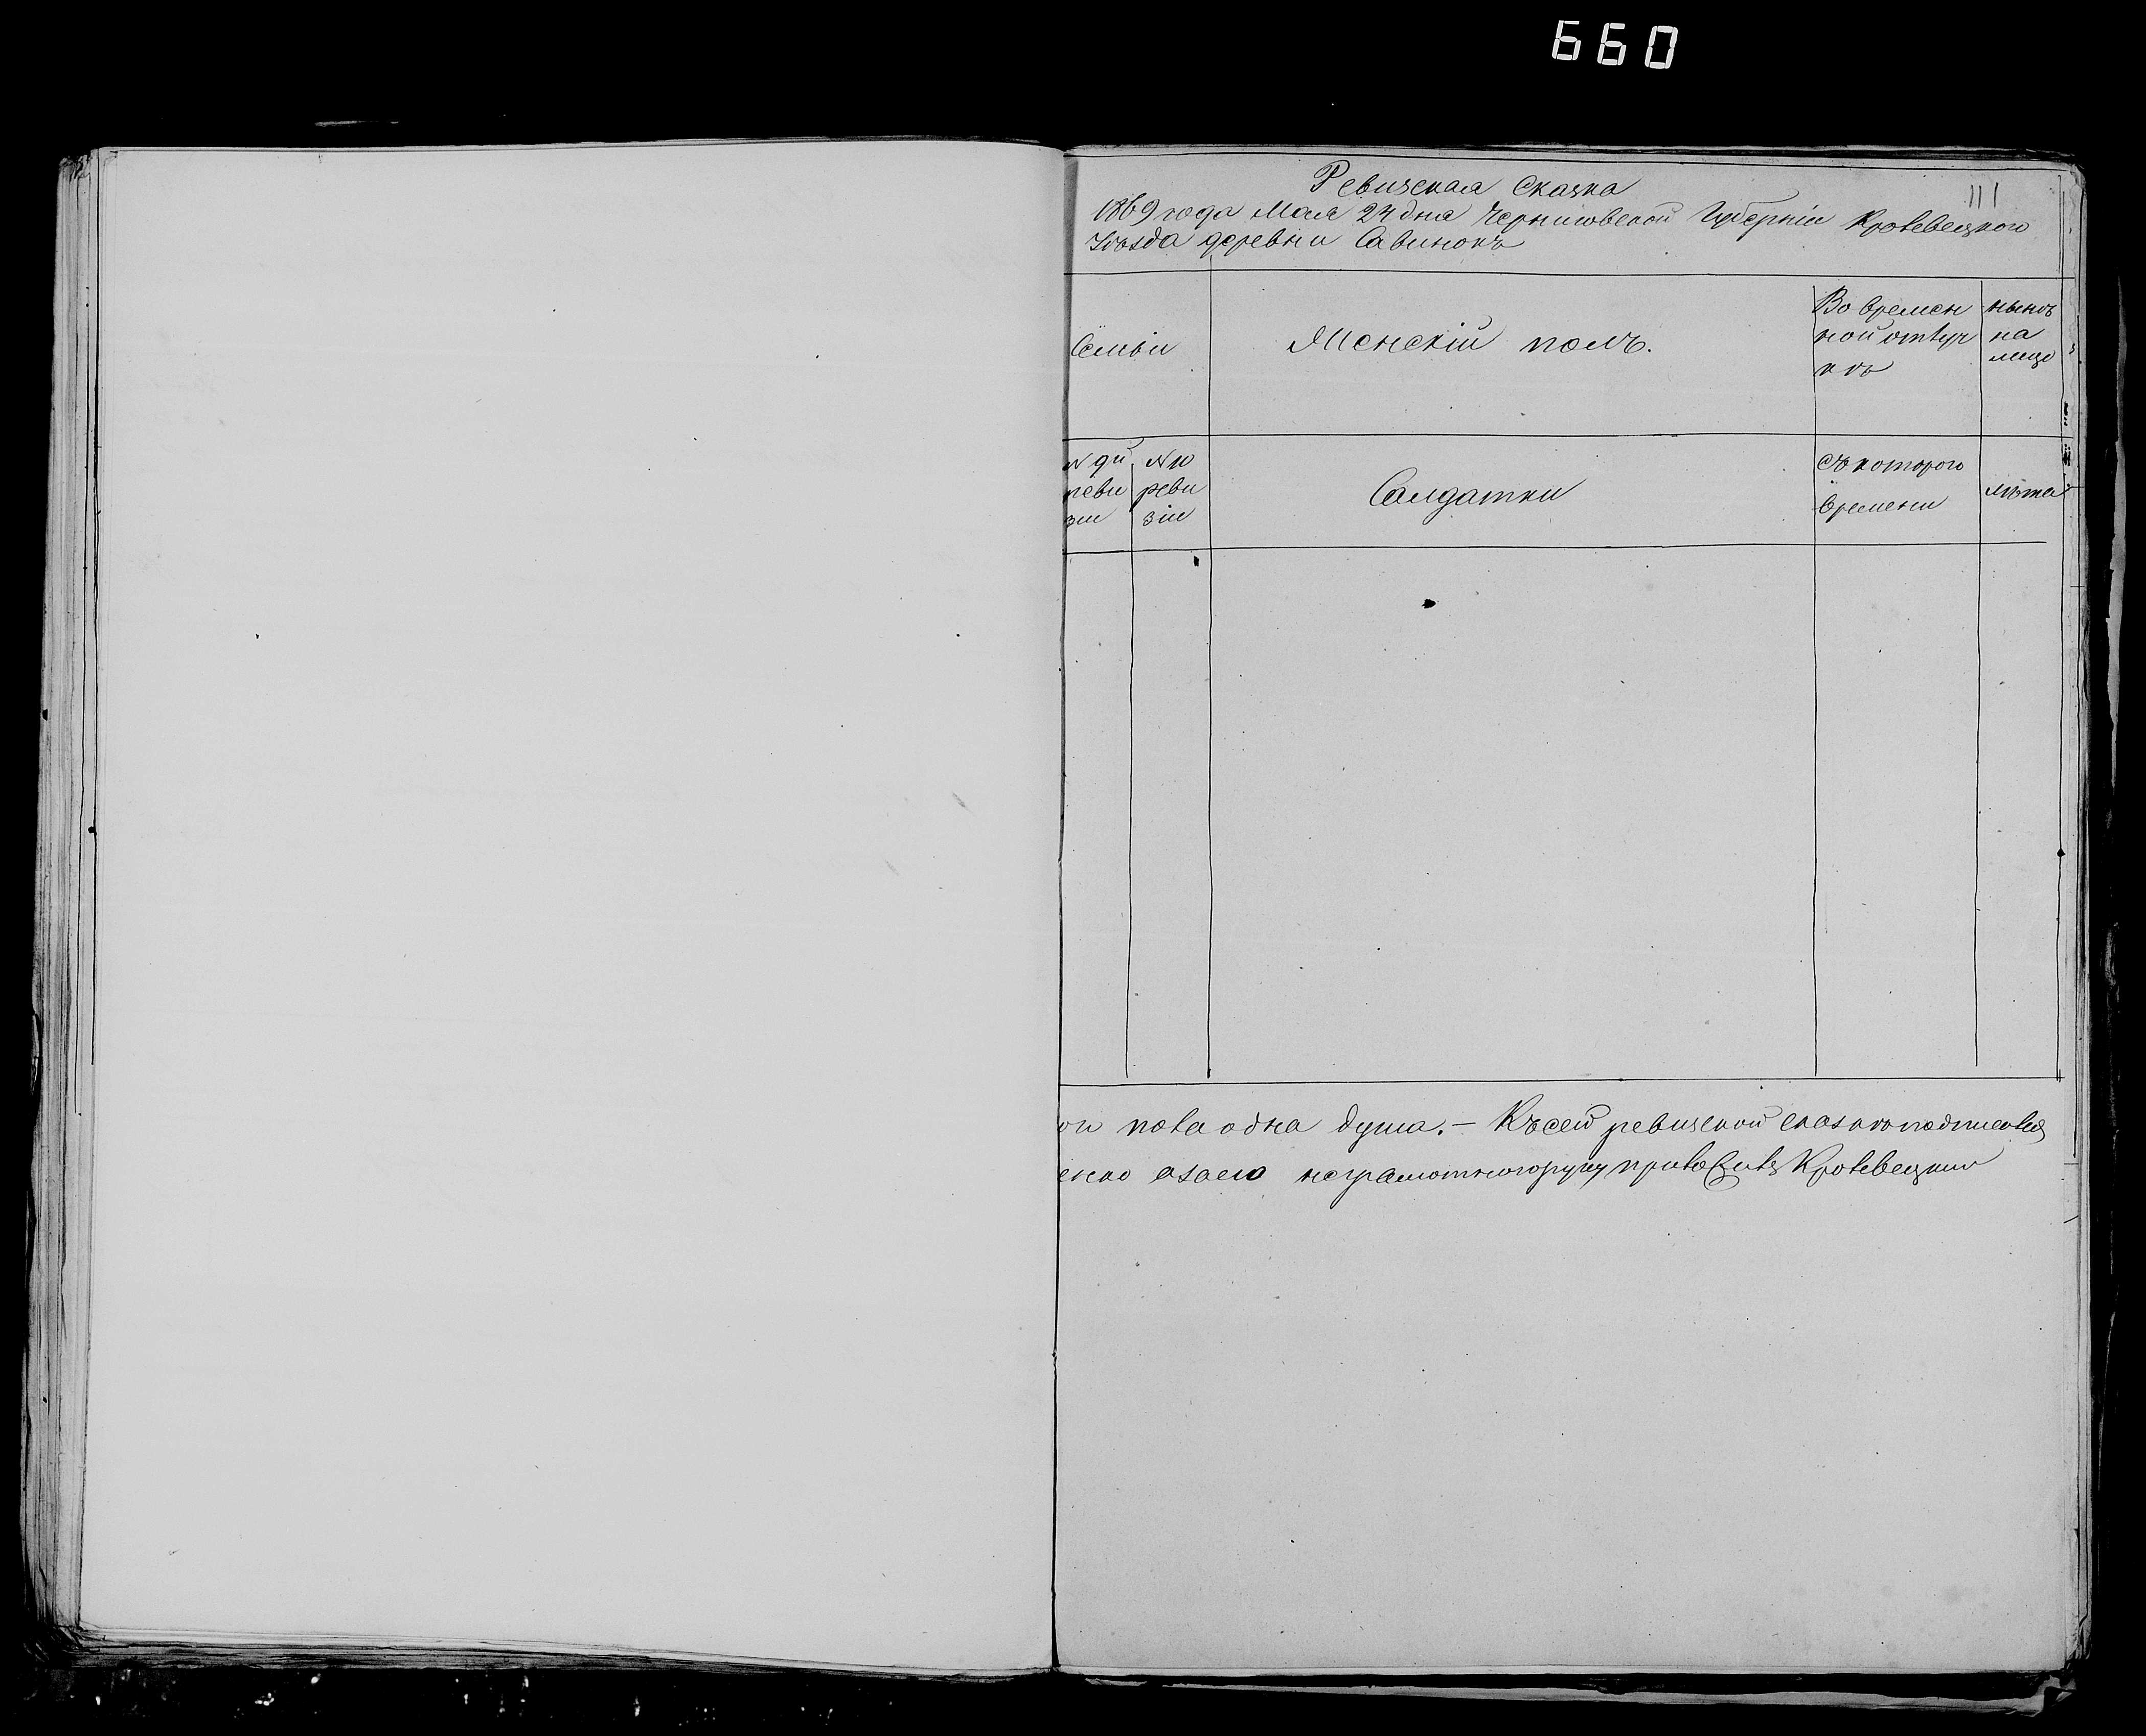 660
111
Ревизская Сказка
1869 года Мая 24 дня Черниговской Губерніи Кролевецкого
Уѣзда деревни Савинокъ
Семьи
Женскій полъ.
Во времен
ной отлуч
кѣ
нынѣ
на
лицо
N 9й
реви
зіи
N 10
реви
зіи
Салдатки
Съ которого
времени
лѣта
пола одна душа. — Къ сей ревизской сказкѣ подписавъ
неграмотного руку приложилъ Кролевецкий